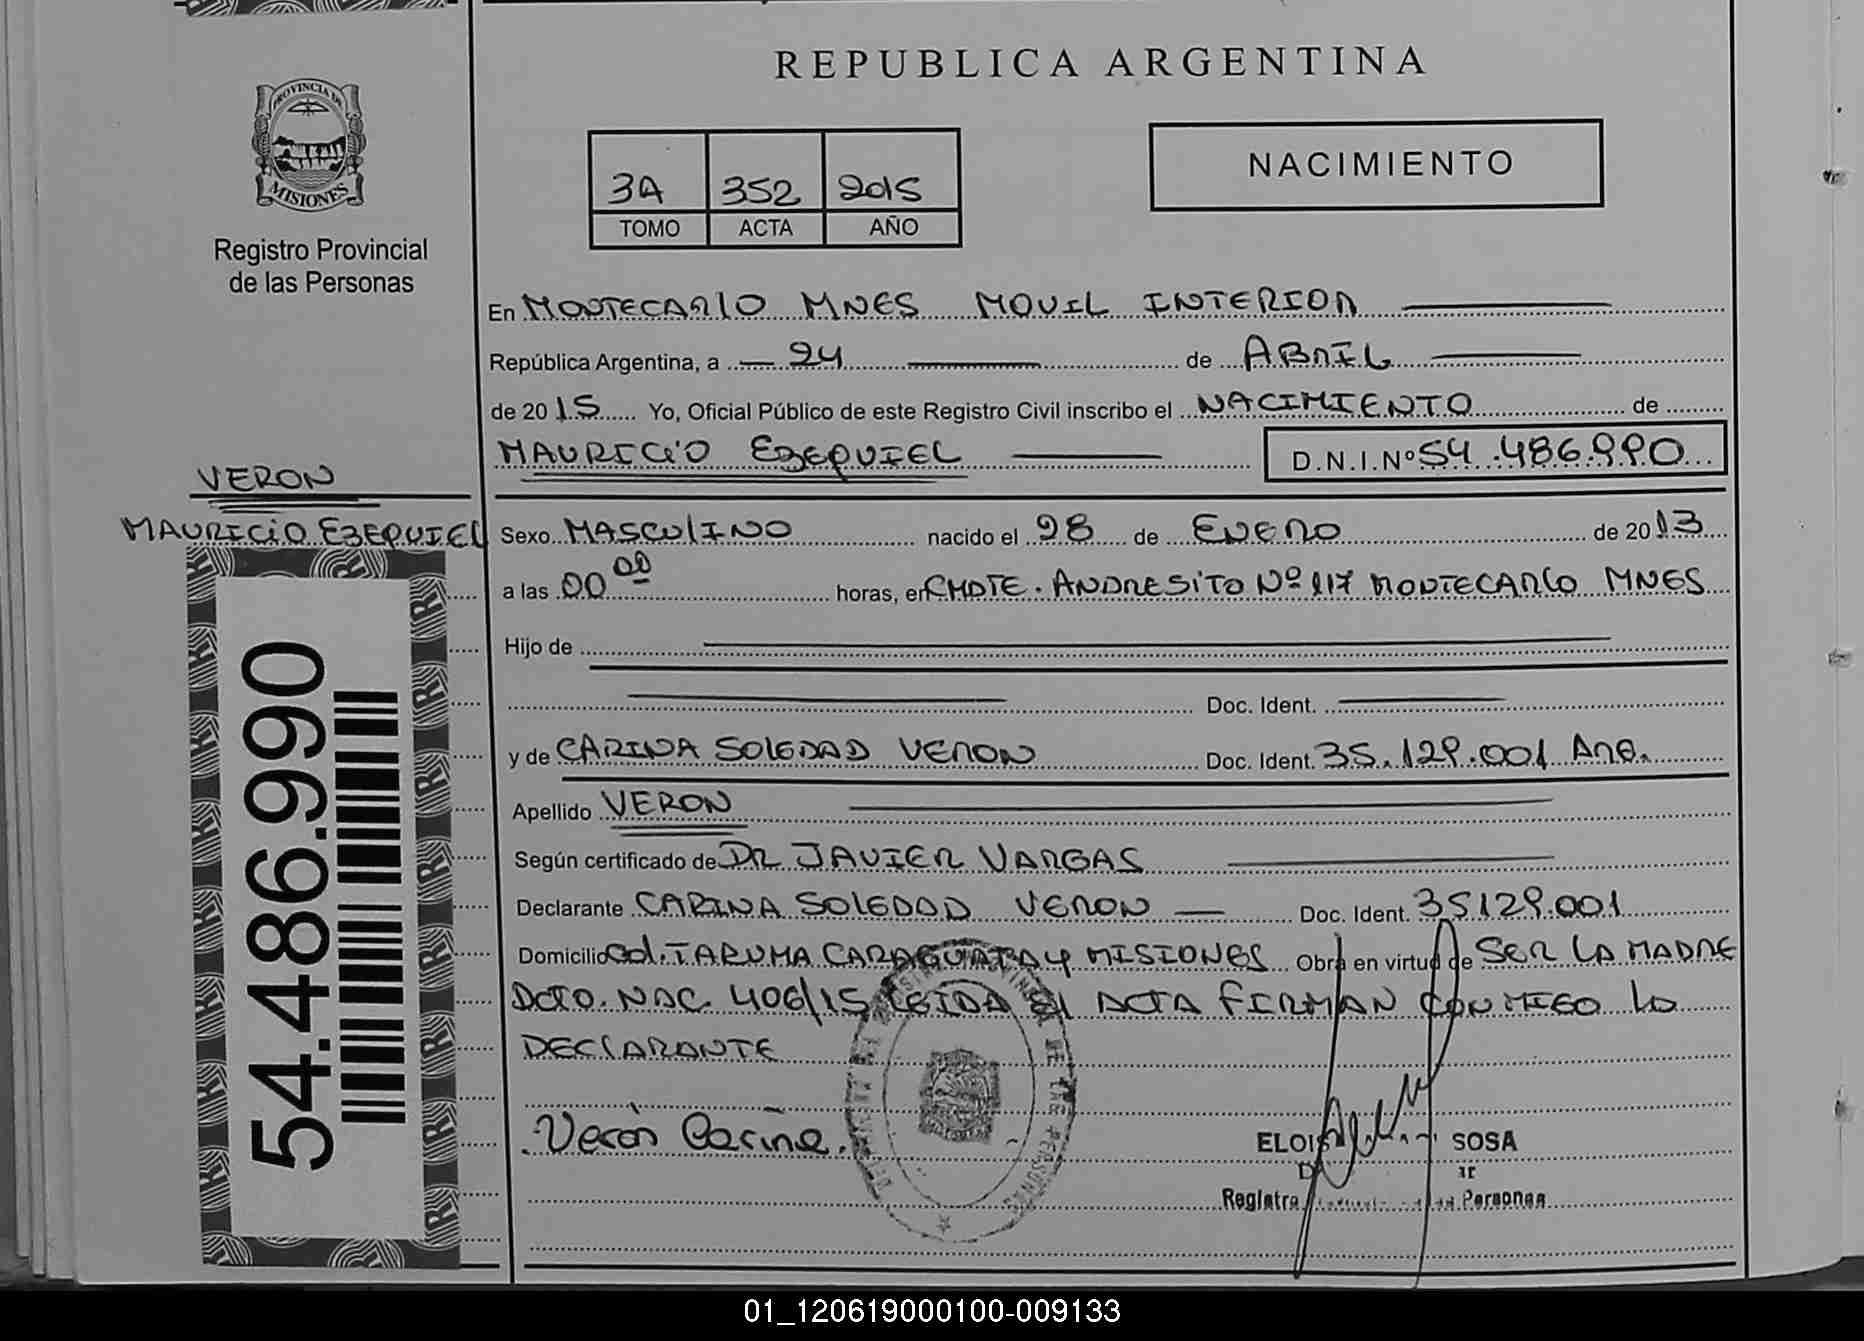 REPUBLICA ARGENTINA
PROVINCIA DE
MISIONES
Registro Provincial
de las Personas
3A 352 2015
TOMO ACTA AÑO
NACIMIENTO
En MONTECARLO MNES MOVIL INTERIOR
República Argentina, a 24 de ABRIL
de 2015 Yo, Oficial Público de este Registro Civil inscribo el NACIMIENTO de
MAURICIO EZEQUIEL D.N.I.Nº 54.486.990
VERON
MAURICIO EZEQUIEL
Sexo MASCULINO nacido el 28 de ENERO de 2013
a las 00 00 horas, en CMDTE. ANDRESITO Nº 117 MONTECARLO MNES
Hijo de
Doc. Ident.
y de CARINA SOLEDAD VERON Doc. Ident. 35.129.001 ARG.
Apellido VERON
Según certificado de DR JAVIER VARGAS
Declarante CARINA SOLEDAD VERON Doc. Ident. 35129.001
Domicilio Col. TARUMA CARAGUATAY MISIONES Obra en virtud de SER LA MADRE
DCTO. NAC. 406/15 LEIDA el ACTA FIRMAN CONMIGO LA
DECLARANTE
Verón Carina.
ELOISA SOSA
Registro Personas
54.486.990
01_120619000100-009133